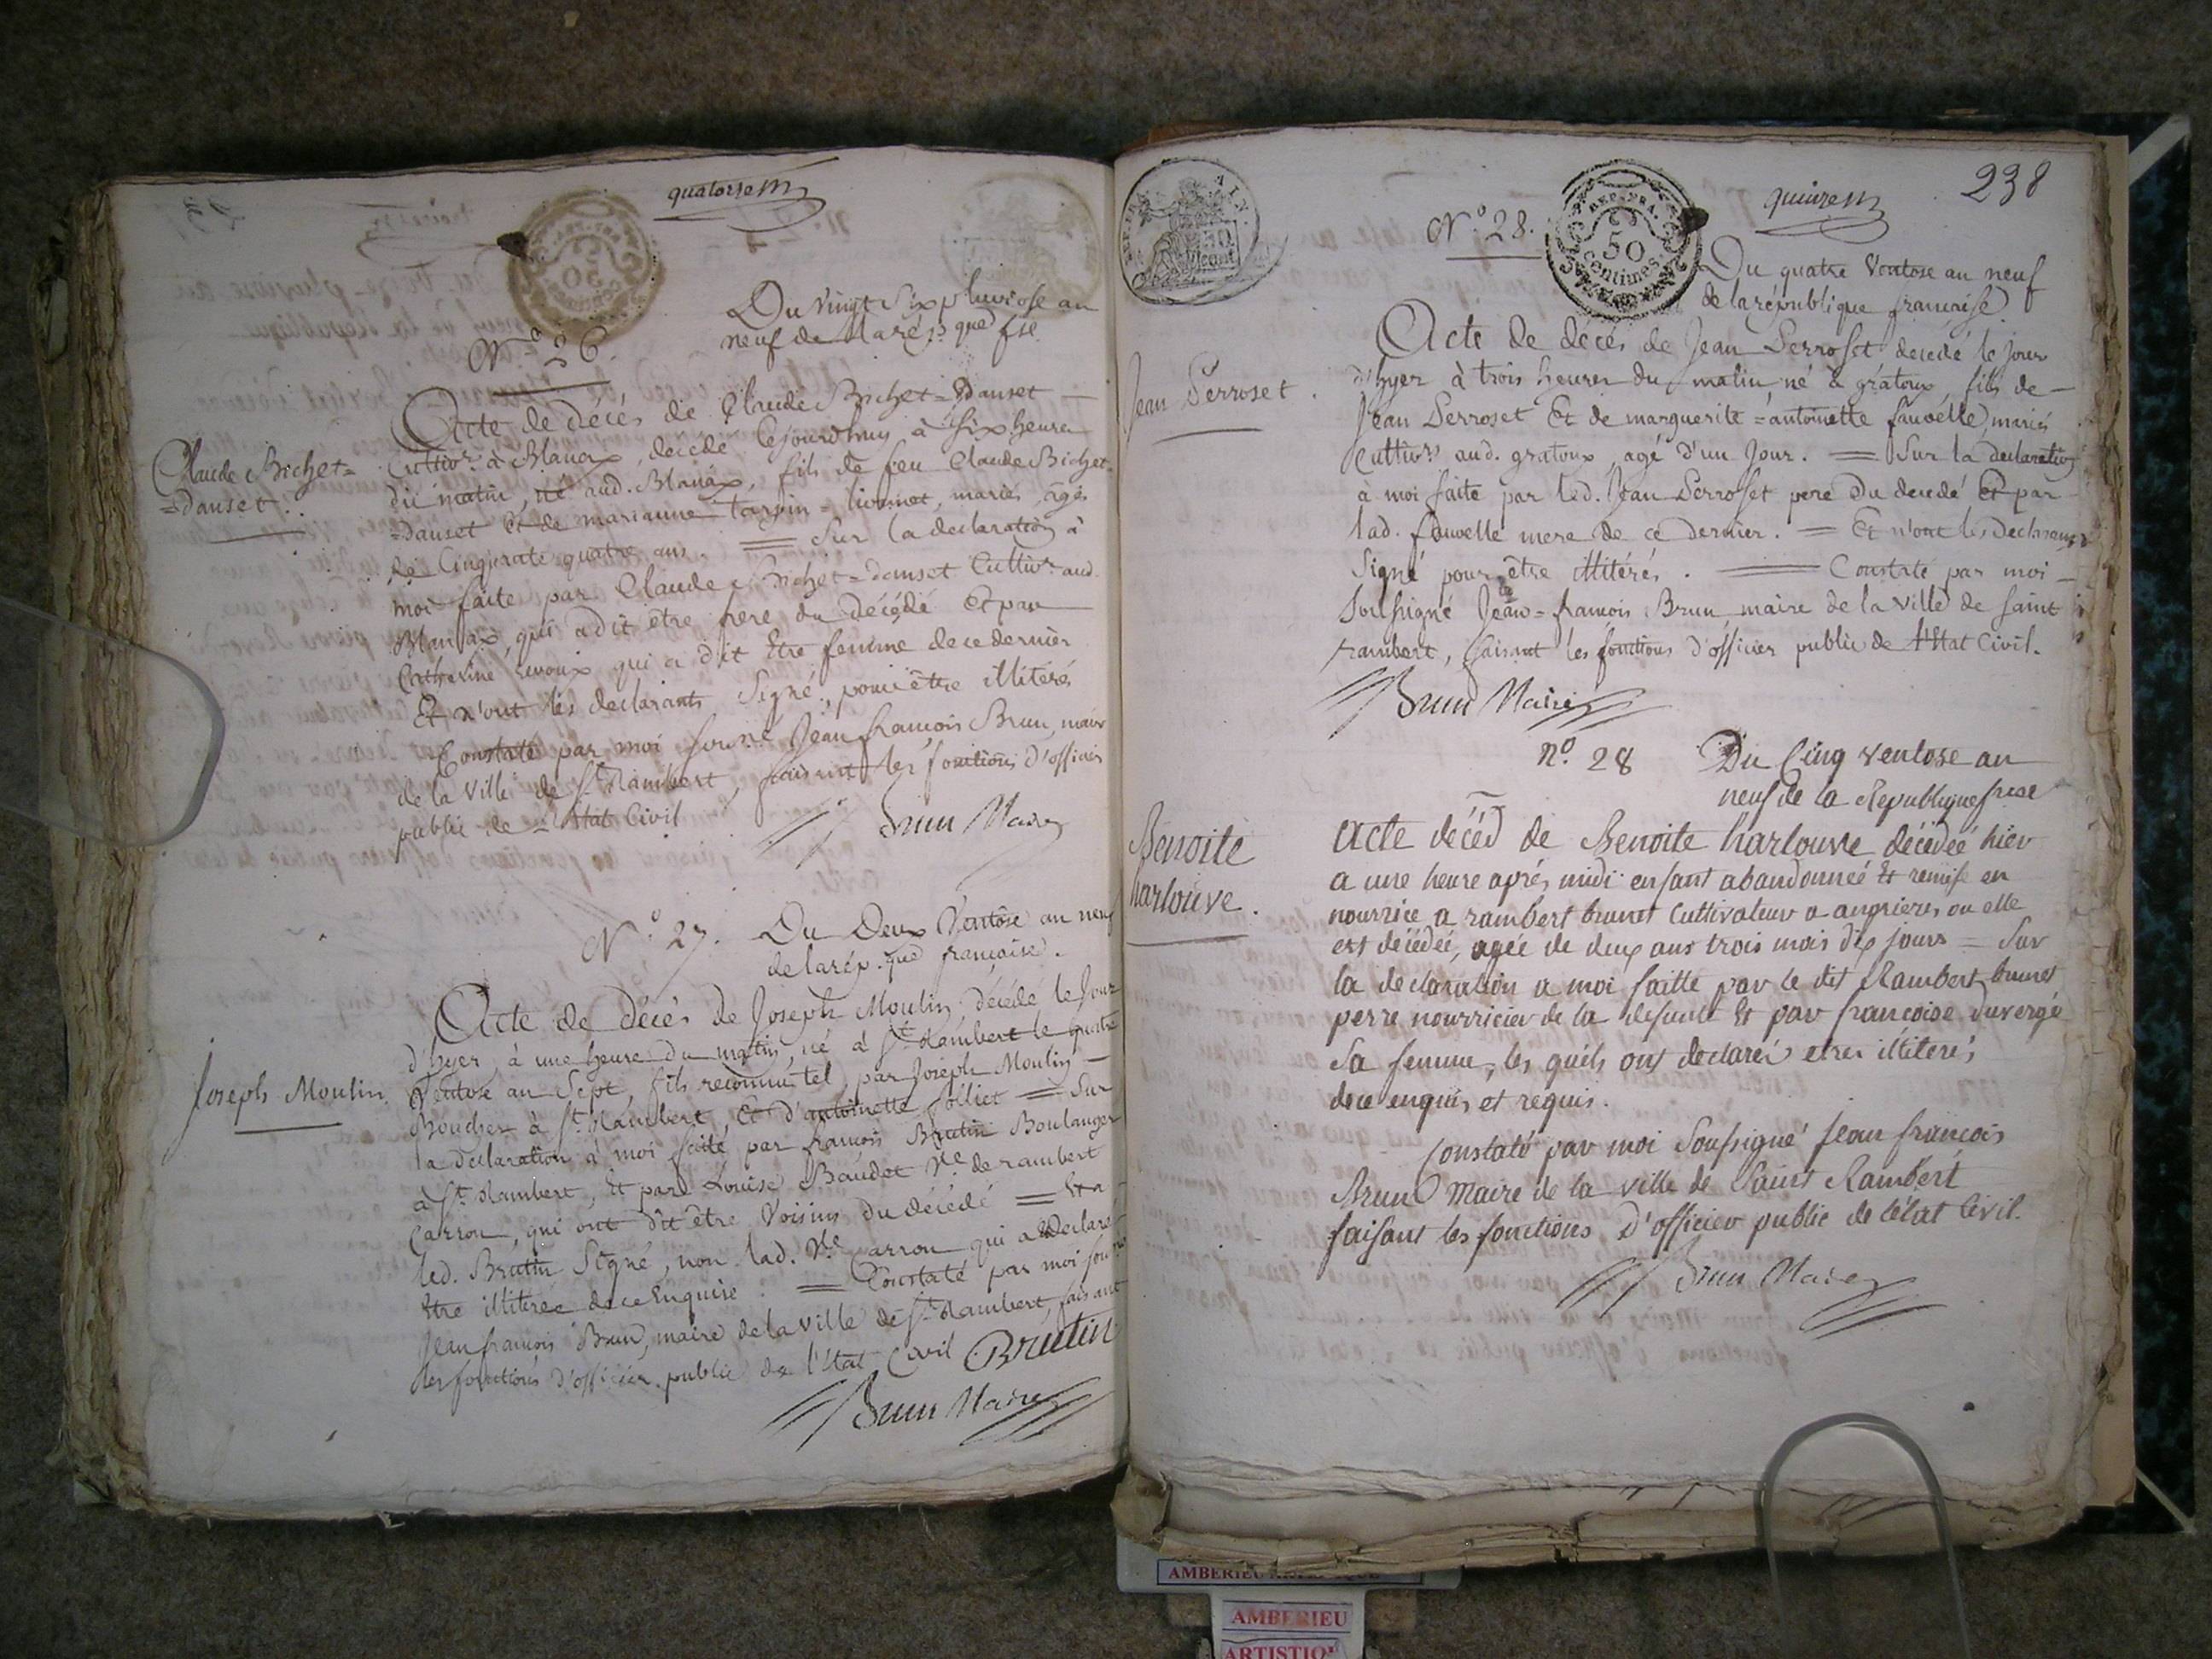 quatorze
Du vingt Six pluviose au
neuf de la rép.que fse.
N.o 26.
Claude Bichet=
=danset.
Acte de décés de Claude Bichet=Danset
Cultivr. à Blanax, décédé cejourdhuy à Six heures
du matin, né aud. Blanax, fils de feu Claude Bichet=
=Danset Et de marianne tarpin=, mariés, agé
de Cinquante quatre ans. = Sur la declaration à
moi faite par Claude Bichet=danset Cultivr. aud.
Blanax, qui a dit être frere du décédé Et par
Catherine qui a dit Etre femme de ce dernier
Et n'ont les declarants Signé, pour être illitérés
Constaté par moi sousné. Jean françois Brun, maire
de la Ville de St. Rambert, faisant les fonctions d'officier
public de l'Etat Civil
Brun Maire
N.o 27. Du Deux Ventôse an neuf
de la rép.que française.
Joseph Moulin.
Acte de décès de Joseph Moulin, décédé le Jour
d'hyer à une heure du matin, né à St. Rambert le quatre
Ventose an Sept, fils reconnu tel, par Joseph Moulin
Boucher à St. Rambert, Et d'antoinette folliet = Sur
la declaration à moi faite par françois Brutin Boulanger
à St. Rambert, Et par Louise Baudet Ve. de rambert
Carron, qui ont dit être Voisins du décédé = Et a
led. Brutin Signé, non lad. Ve. Carron qui a Declaré
Etre illiterée de ce Enquise. = Constaté par moi sousné
Jean françois Brun, maire de la Ville de St. Rambert, faisant
les fonctions d'officier public de l'Etat Civil Brutin
Brun Maire
quinze
238
N.o 28.
REP. FRA.
50
centimes
Du quatre Ventose an neuf
de la république française.
Jean Perroset.
Acte de décés de Jean Perroset decedé le jour
d'hyer à trois heures du matin né à gratoux, fils de
Jean Perroset Et de marguerite=antoinette fauvelle, mariés
Cultivrs. aud. gratoux, agé d'un Jour. = Sur la declaration
à moi faite par led. Jean Perroset pere du decedé Et par
lad. fauvelle mere de ce dernier. = Et n'ont les Declarants
Signé pour être illitérés. = Constaté par moi
Soussigné Jean=françois Brun maire de la Ville de Saint
rambert, faisant les fonctions d'officier public de l'Etat Civil.
Brun Maire
no. 28 Du Cinq ventose an
neuf de la Republique frse
Benoite
harlouve.
Acte décéd de Benoite harlouve décédeé hier
a une heure aprés midi enfant abandonneé Et remise en
nourrice a rambert brunet Cultivateur a angrieres ou elle
est décédeé, agée de deux ans trois mois dix jours = Sur
la declaration a moi faitte par le dit Rambert brunet
perre nourricier de la defunte Et par francoise duvergé
Sa femme, les quels ont declarés etres illiterés
de ce enquis et requis.
Constaté par moi Soussigné Jean françois
Brun Maire de la ville de Saint Rambert
faisant les fonctions d'officier public de l'état Civil.
Brun Maire
AMBERIEU
AMBERIEU